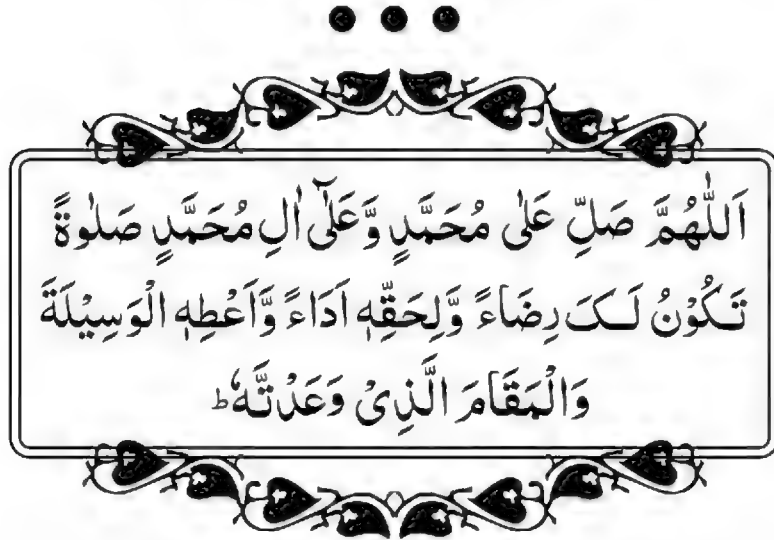 اَللّٰهُمَّ صَلِّ عَلٰى مُحَمَّدٍ وَّعَلٰٓى اٰلِ مُحَمَّدٍ صَلٰوةً
تَكُوْنُ لَکَ رِضَاءً وَّلِحَقِّهٖ اَدَاءً وَّاَعْطِهِ الْوَسِيْلَةَ
وَالْمَقَامَ الَّذِىْ وَعَدْتَّهٗ ؕ